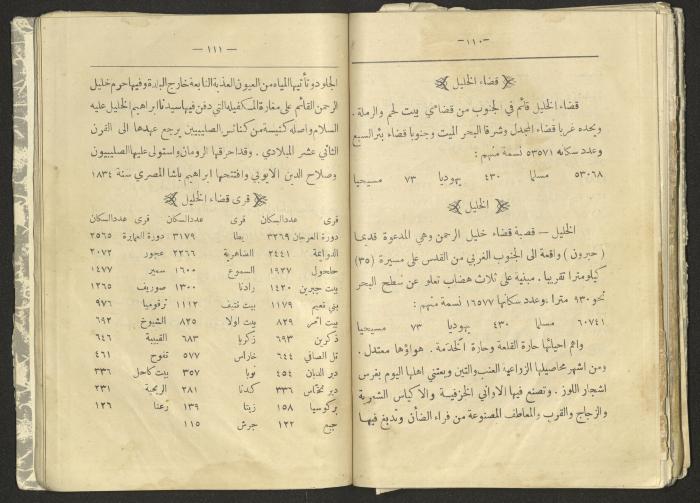 — ١١٠ —
قضاء الخليل
قضاء الخليل قائم في الجنوب من قضائي بيت لحم والرملة .
ويحده غربا قضاء المجدل وشرقا البحر الميت وجنوبا قضاء بئر السبع
وعدد سكانه ٥٣٥٧١ نسمة منهم :
٥٣٠٦٨ مسلما ٤٣٠ يهوديا ٧٣ مسيحيا
الخليل
الخليل — قصبة قضاء خليل الرحمن وهي المدعوة قديما
( حبرون ) واقعة الى الجنوب الغربي من القدس على مسيرة (٣٥)
كيلومترا تقريبا . مبنية على ثلاث هضاب تعلو عن سطح البحر
نحو ٩٣٠ مترا ، وعدد سكانها ١٦٥٧٧ نسمة منهم :
٦٠٧٤١ مسلما ٤٣٠ يهوديا ٧٣ مسيحيا
واهم احيائها حارة القلعة وحارة الخدمة . هواؤها معتدل .
ومن اشهر محاصيلها الزراعية العنب والتين ويعتني اهلها اليوم بغرس
اشجار اللوز . وتصنع فيها الاواني الخزفية والاكياس الشعرية
والزجاج والقرب والمعاطف المصنوعة من فراء الضأن وتدبغ فيها
— ١١١ —
الجلود وتأتيها المياه من العيون العذبة النابعة خارج البلدة وفيها حرم خليل
الرحمن القائم على مغارة المكفيلة التي دفن فيها سيدنا ابراهيم الخليل عليه
السلام واصله كنيسة من كنائس الصليبيين يرجع عهدها الى القرن
الثاني عشر الميلادي . وقد احرقها الرومان واستولى عليها الصليبيون
وصلاح الدين الايوبي وافتتحها ابراهيم باشا المصري سنة ١٨٣٤
قرى قضاء الخليل
قرى عدد السكان قرى عدد السكان قرى عدد السكان
دورة العرجان ٣٢٦٩ يطا ٣١٧٩ دورة العمايرة ٢٥٦٥
الدوايمة ٢٤٤١ الضاهرية ٢٢٦٦ عجور ٢٠٧٢
حلحول ١٩٢٧ السموع ١٦٠٠ سعير ١٤٧٧
بيت جبرين ١٤٢٠ رادنا ١٣٠٠ صوريف ١٢٦٥
بني نعيم ١١٧٩ بيت نتيف ١١١٢ ترقوميا ٩٧٦
بيت امر ٨٢٩ بيت اولا ٨٢٥ الشيوخ ٦٩٢
ذكرين ٦٩٣ زكريا ٦٨٣ القبيبة ٦٤٦
تل الصافي ٦٤٤ خاراس ٥٧٧ تفوح ٤٦١
دير الدبان ٤٥٤ نوبا ٣٥٧ بيت كاحل ٣٣٦
دير نخاس ٣٣٦ كدنا ٢٨١ الريحية ٢٣١
بركوسيا ١٥٨ زيتا ١٣٩ رعنا ١٢٦
جبع ١٢٢ جرش ١١٥